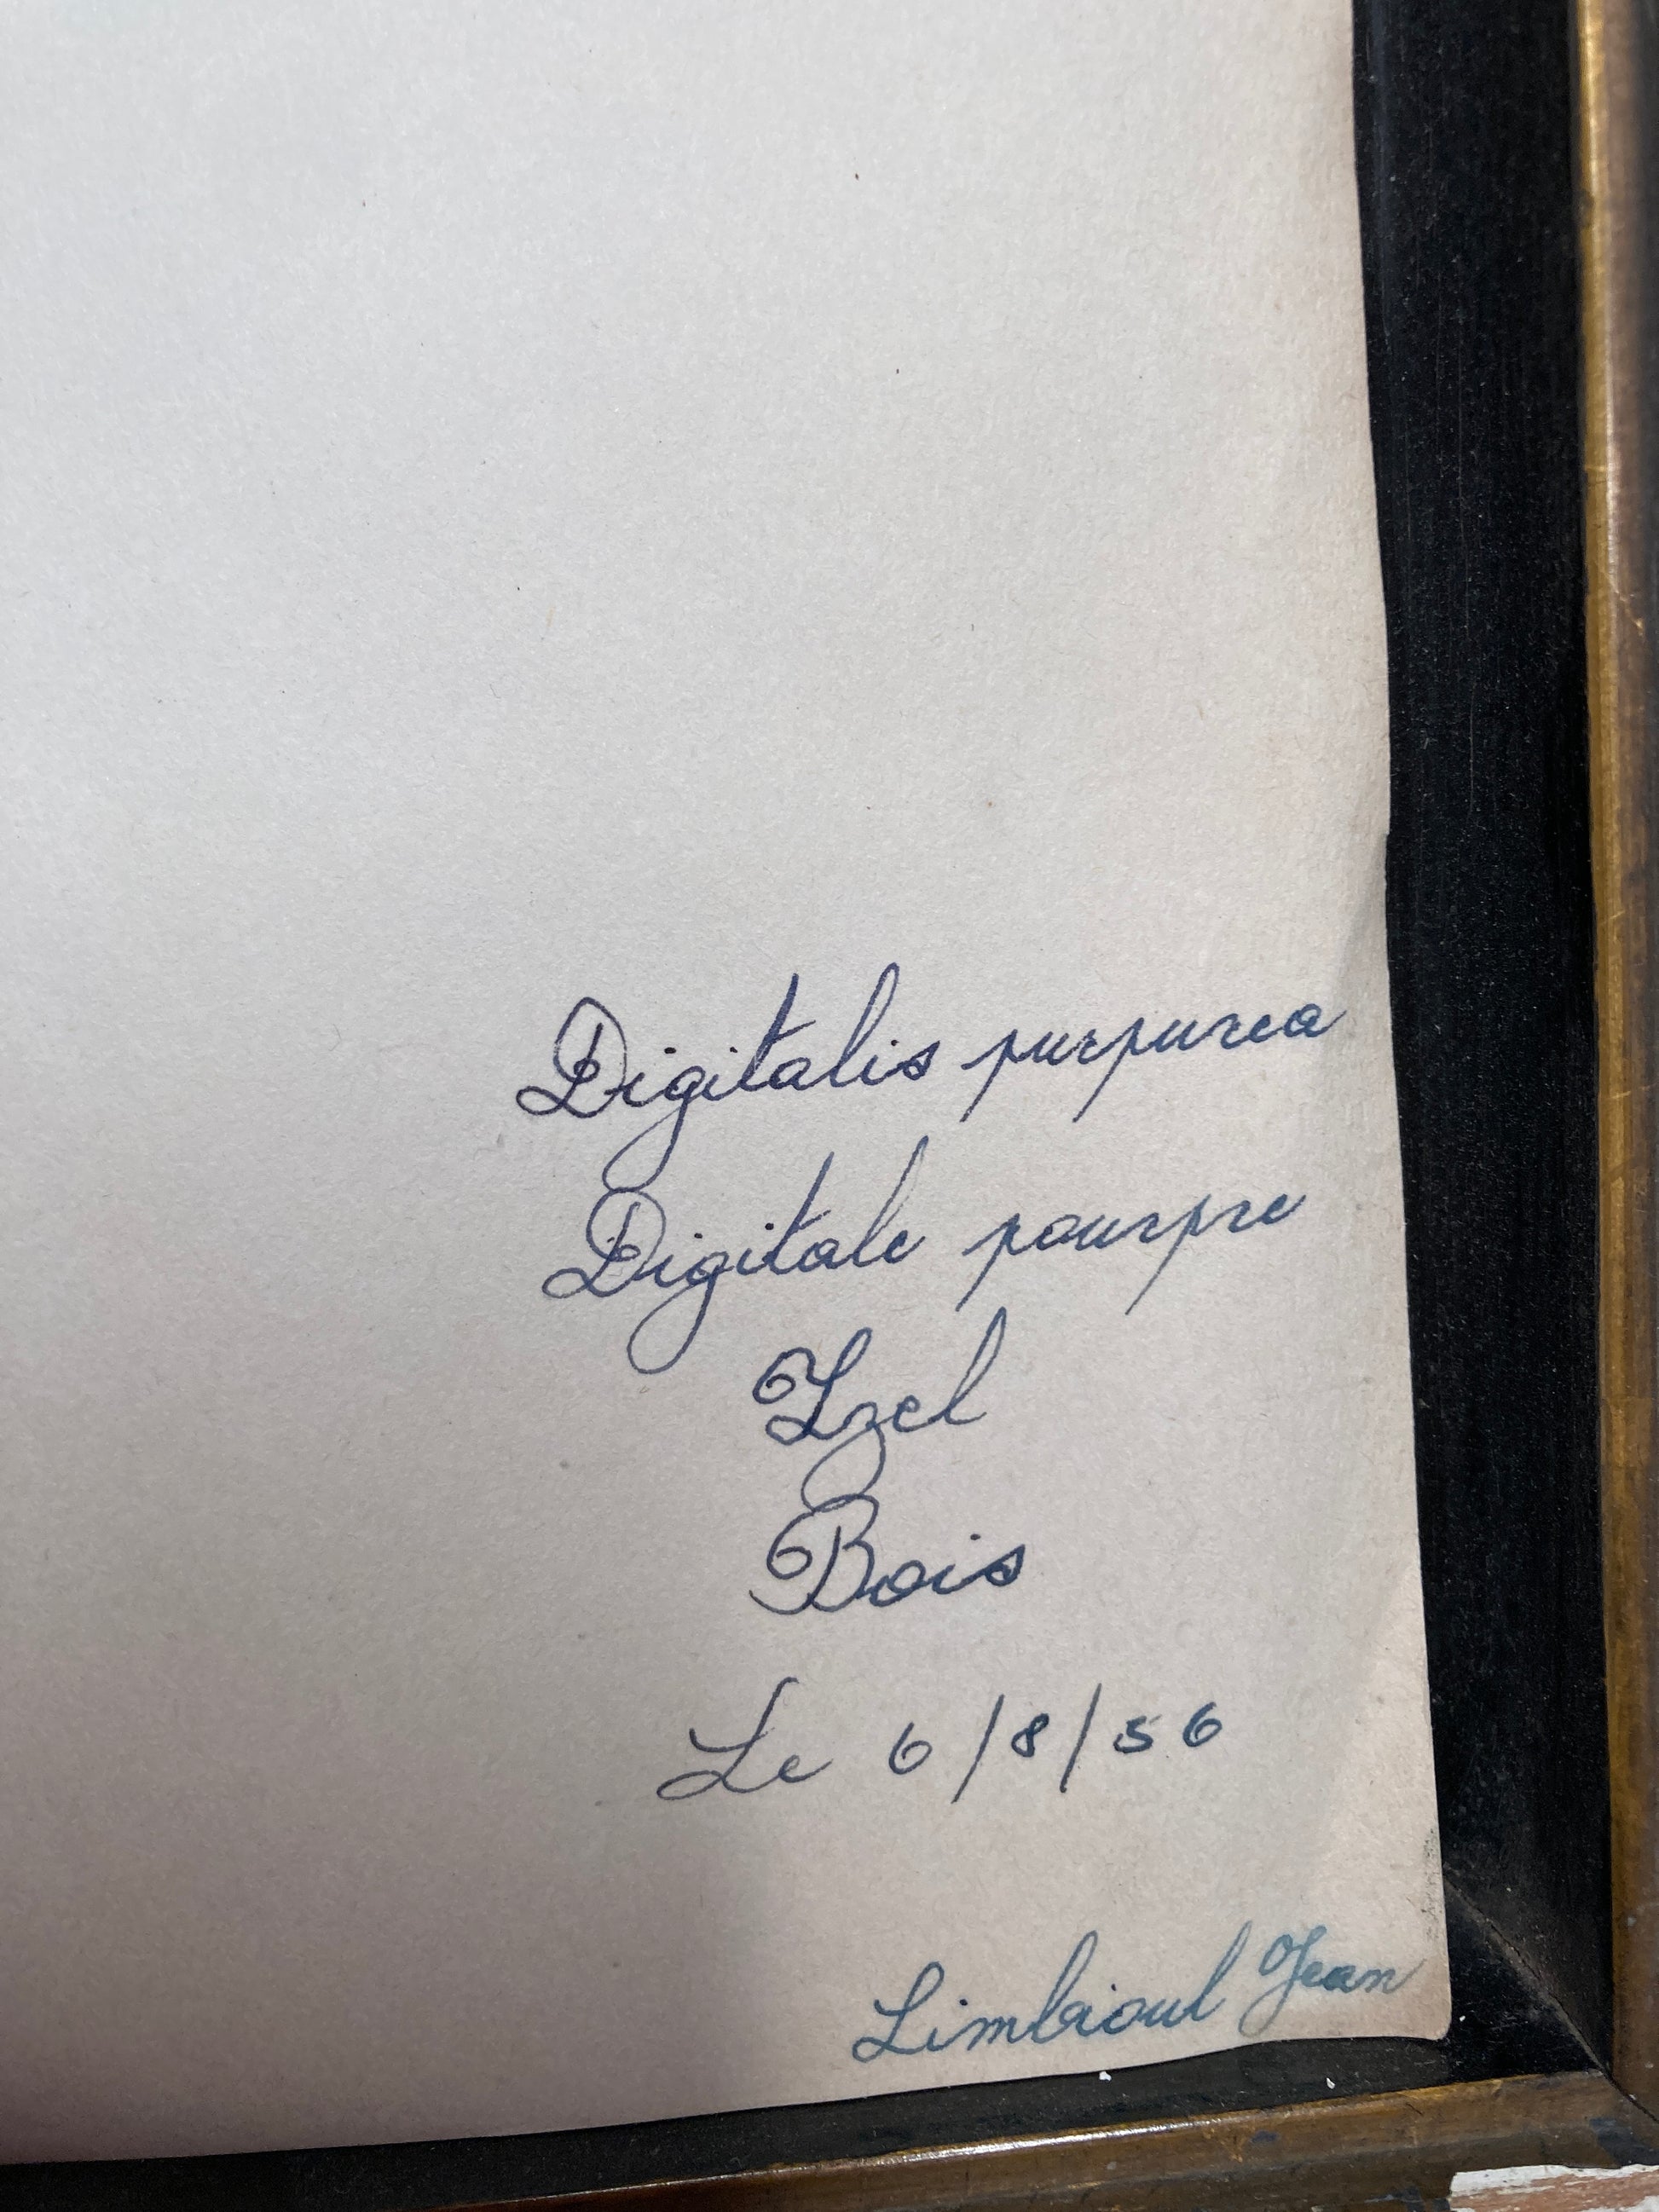 Digitalis purpurea
Digitale pourpre
Izel
Bois
Le 6/8/56
Limbioul Jean